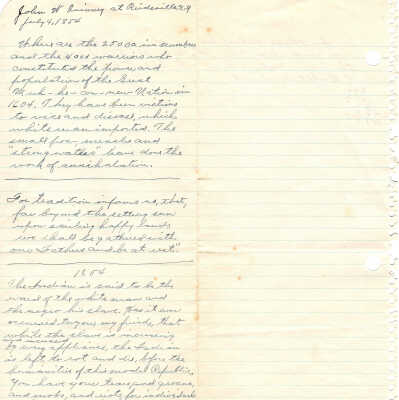 John W Quinney at Reidsville N.Y
July 4, 1854
Where are the 25000 in number
and the 4000 warriors who
constituted the power and
population of the Great
Muh-he-con-new Nation in
1604. They have been victims
to vice and disease, which
white man imported. The
small pox-measles and
"strong waters" have done the
work of annihilation.
For tradition informs us, that,
far beyond the setting sun
upon smiling happy lands
we shall be gathered with
our Fathers and be at rest".
1854
The Indian is said to be the
ward of the white man and
the negro his slave. Has it ever
occurred to you my friends, that
while the slave is increasing
and increased
by every appliance, the Indian
is left to rot and die, before the
humanities of this model Republic.
You have your tears, and groans,
and mobs, and riots, for